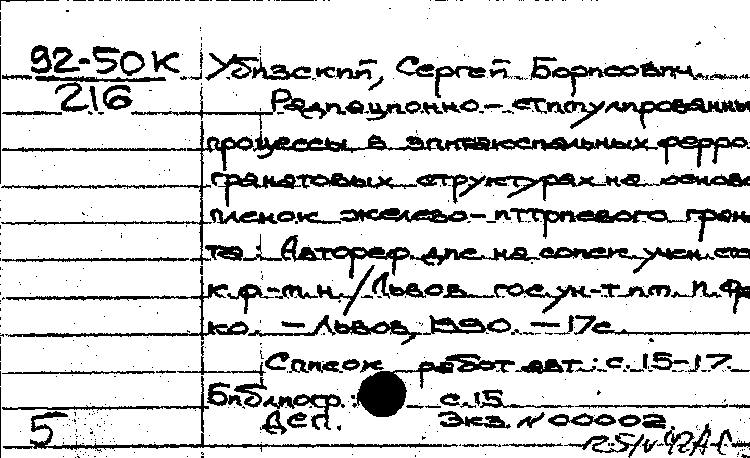 92-50К
216
Убизский, Сергей Борисович.
Радиационно-стимулированны
процессы в эпитаксиальных ферро-
гранатовых структурах на основе
пленок железо-иттриевого гран
та: Автореф. дис. на соиск. учен. сте
к.ф.-м.н./Львов. гос. ун-т им. И. Фра
ко. - Львов, 1990. - 17с.
Список работ авт.: с. 15-17
Библиогр.: с.15
5 Деп. Экз. N 00002.